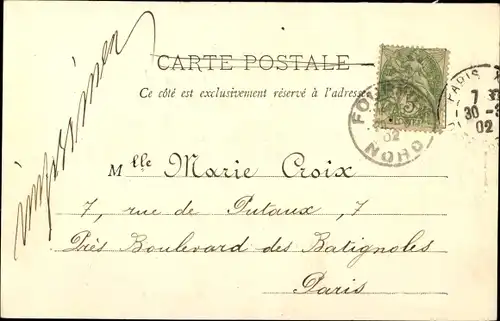 imprimés
CARTE POSTALE
Ce côté est exclusivement réservé à l'adresse
5
NORD
02
PARIS
7
30-
02
Mlle Marie Croix
7, rue de Putaux, 7
Près Boulevard des Batignoles
Paris